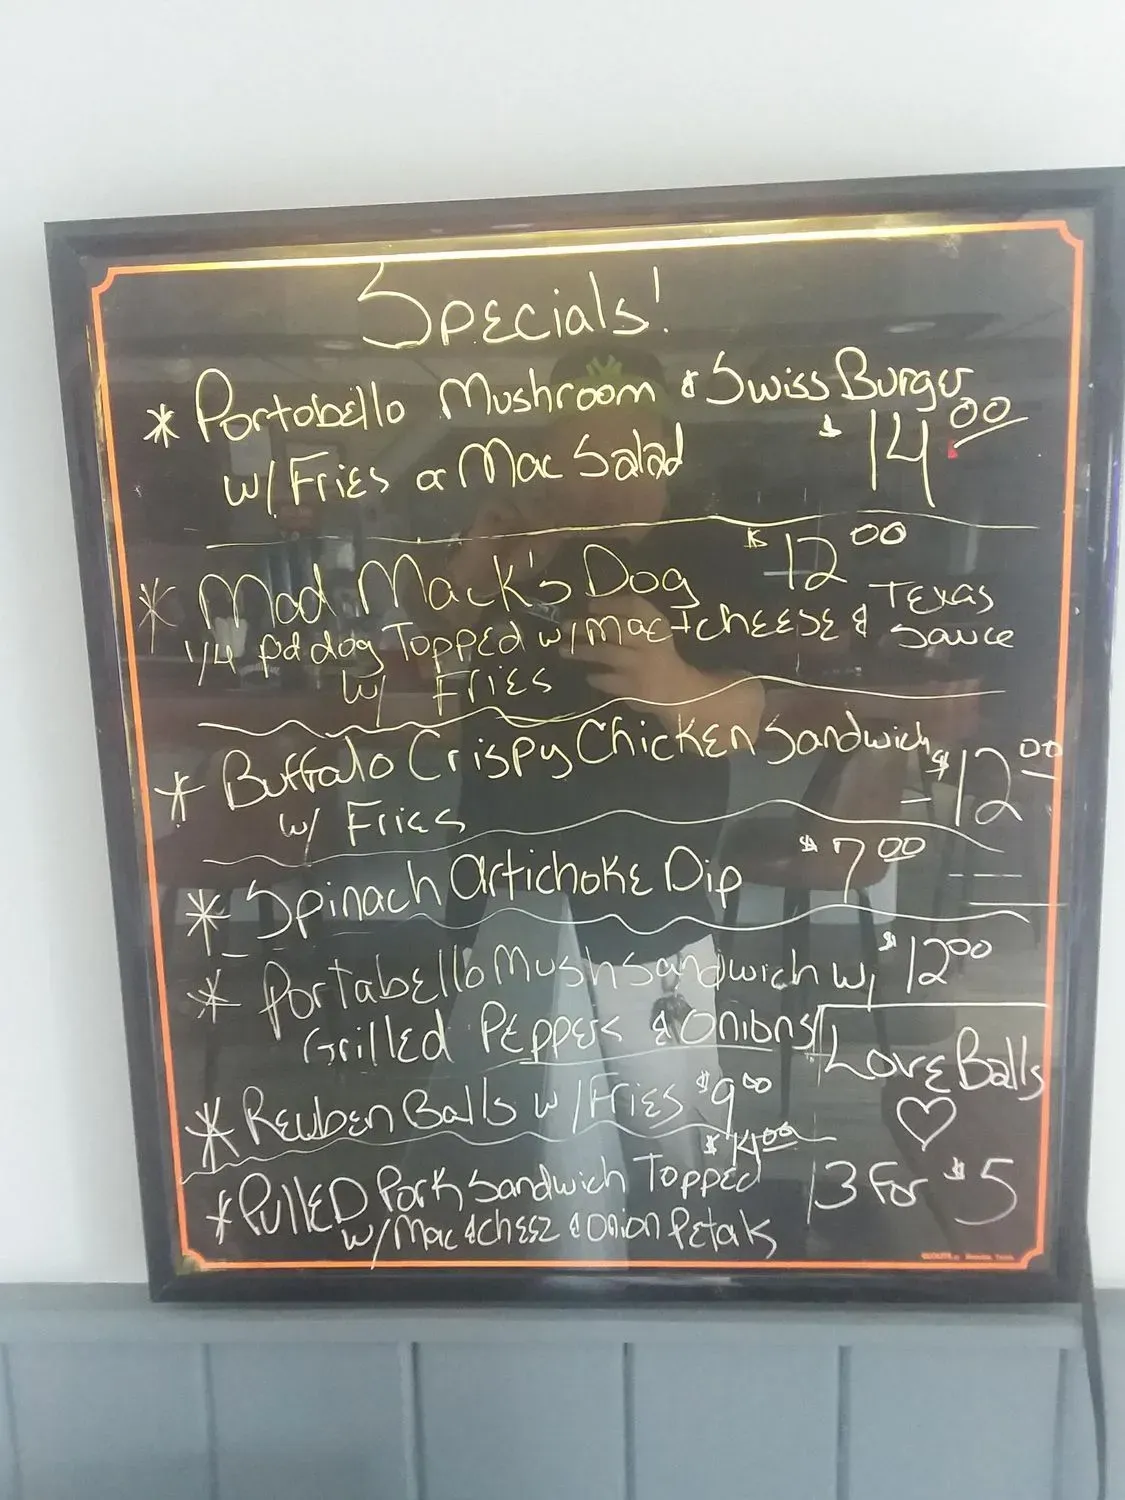 Specials!
* Portobello Mushroom & Swiss Burger
w/ Fries or Mac Salad $14.00
* Mad Mack's Dog $12.00
1/4 pd dog Topped w/ Mac + cheese & Texas Sauce
w/ Fries
* Buffalo Crispy Chicken Sandwich $12.00
w/ Fries
* Spinach Artichoke Dip $7.00
* Portabello Mush Sandwich w/ $12.00
Grilled Peppers & Onions
* Reuben Balls w/ Fries $9.00
* Pulled Pork Sandwich Topped
w/ Mac & cheez & Onion Petals
Love Balls
♡
3 For $5